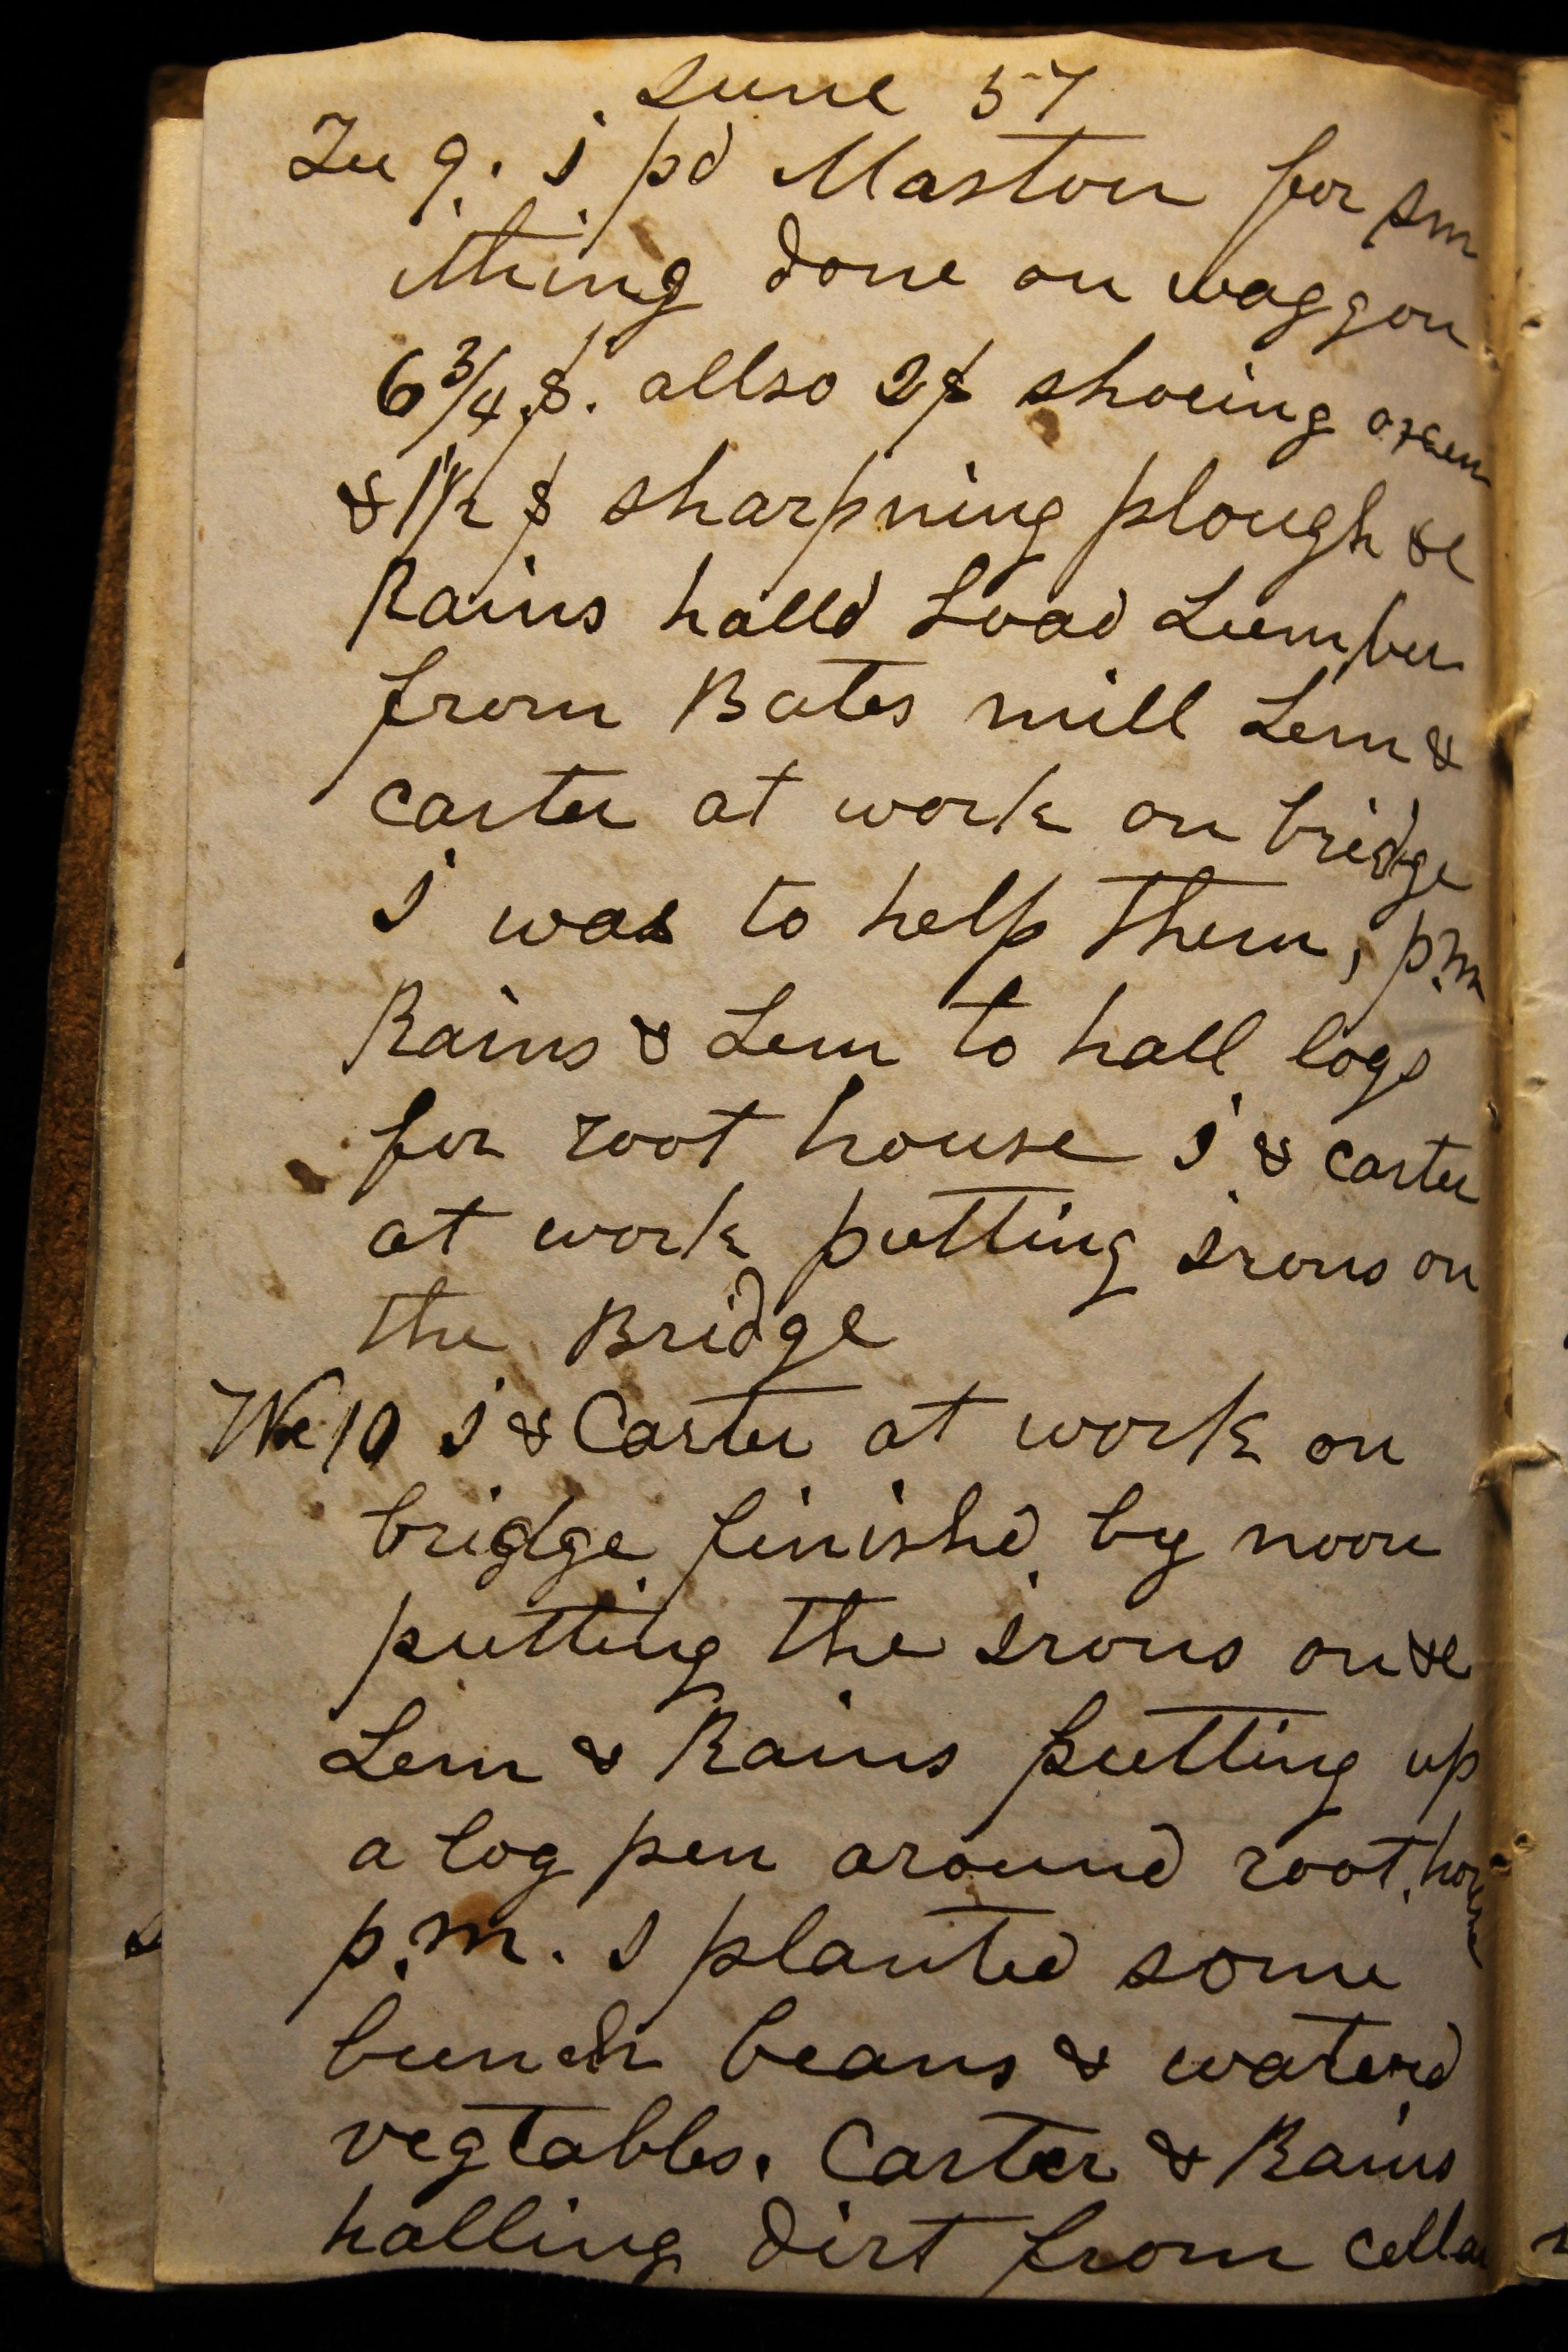 June 57
Tu 9. i pd Maston for sm
ithing done on waggon
6 3/4 $. allso 2$ shoeing oxen
& 1 1/2 $ sharpning plough &c
Rains halld Load Lumber
from Bates mill Lem &
carter at work on bridge
i was to help them, p.m
Rains & Lem to hall logs
for root house i & carter
at work putting irons on
the Bridge
We 10 i & Carter at work on
bridge finishd by noon
putting the irons on &c
Lem & Rains putting up
a log pen around root house
p.m. i planted some
bunch beans & waterd
vegtables. Carter & Rains
halling dirt from cellar